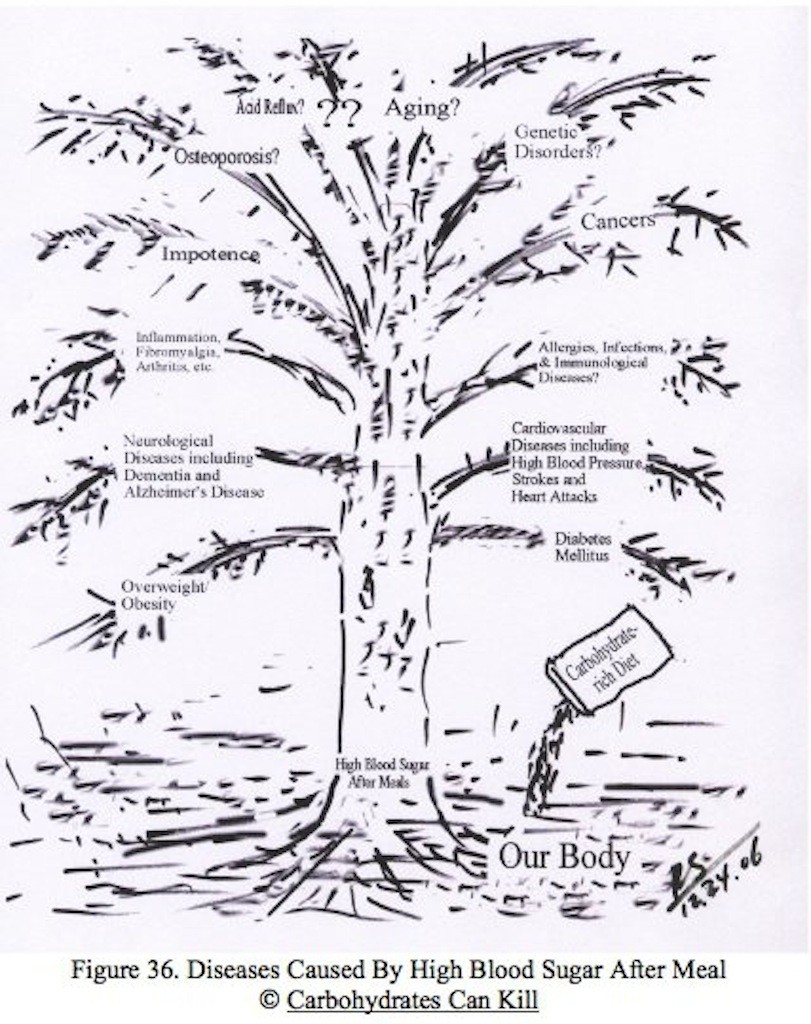 Acid Reflux?
??
Aging?
Genetic
Disorders?
Osteoporosis?
Cancers
Impotence
Inflammation,
Fibromyalgia,
Arthritis, etc.
Allergies, Infections,
& Immunological
Diseases?
Neurological
Diseases including
Dementia and
Alzheimer's Disease
Cardiovascular
Diseases including
High Blood Pressure,
Strokes and
Heart Attacks
Diabetes
Mellitus
Overweight/
Obesity
Carbohydrate-
rich Diet
High Blood Sugar
After Meals
Our Body
R.S.
12.24.06
Figure 36. Diseases Caused By High Blood Sugar After Meal
© Carbohydrates Can Kill